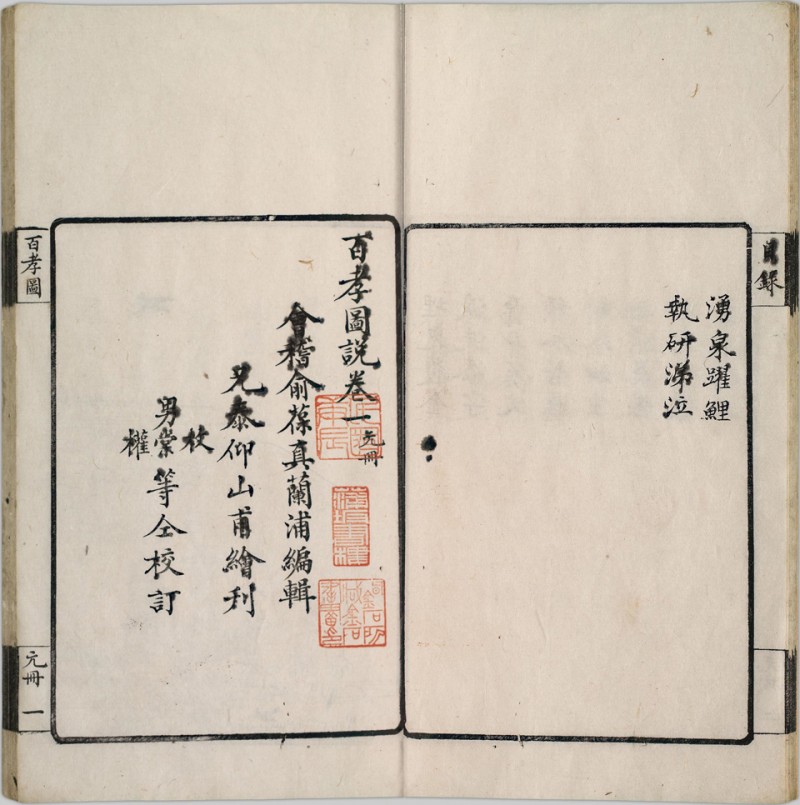 目錄
湧泉躍鯉
執硏涕泣
百孝圖說卷一 元冊
會稽俞葆真蘭浦編輯
兄泰仰山甫繪刊
男崇權等仝校訂
百孝圖
元冊 一